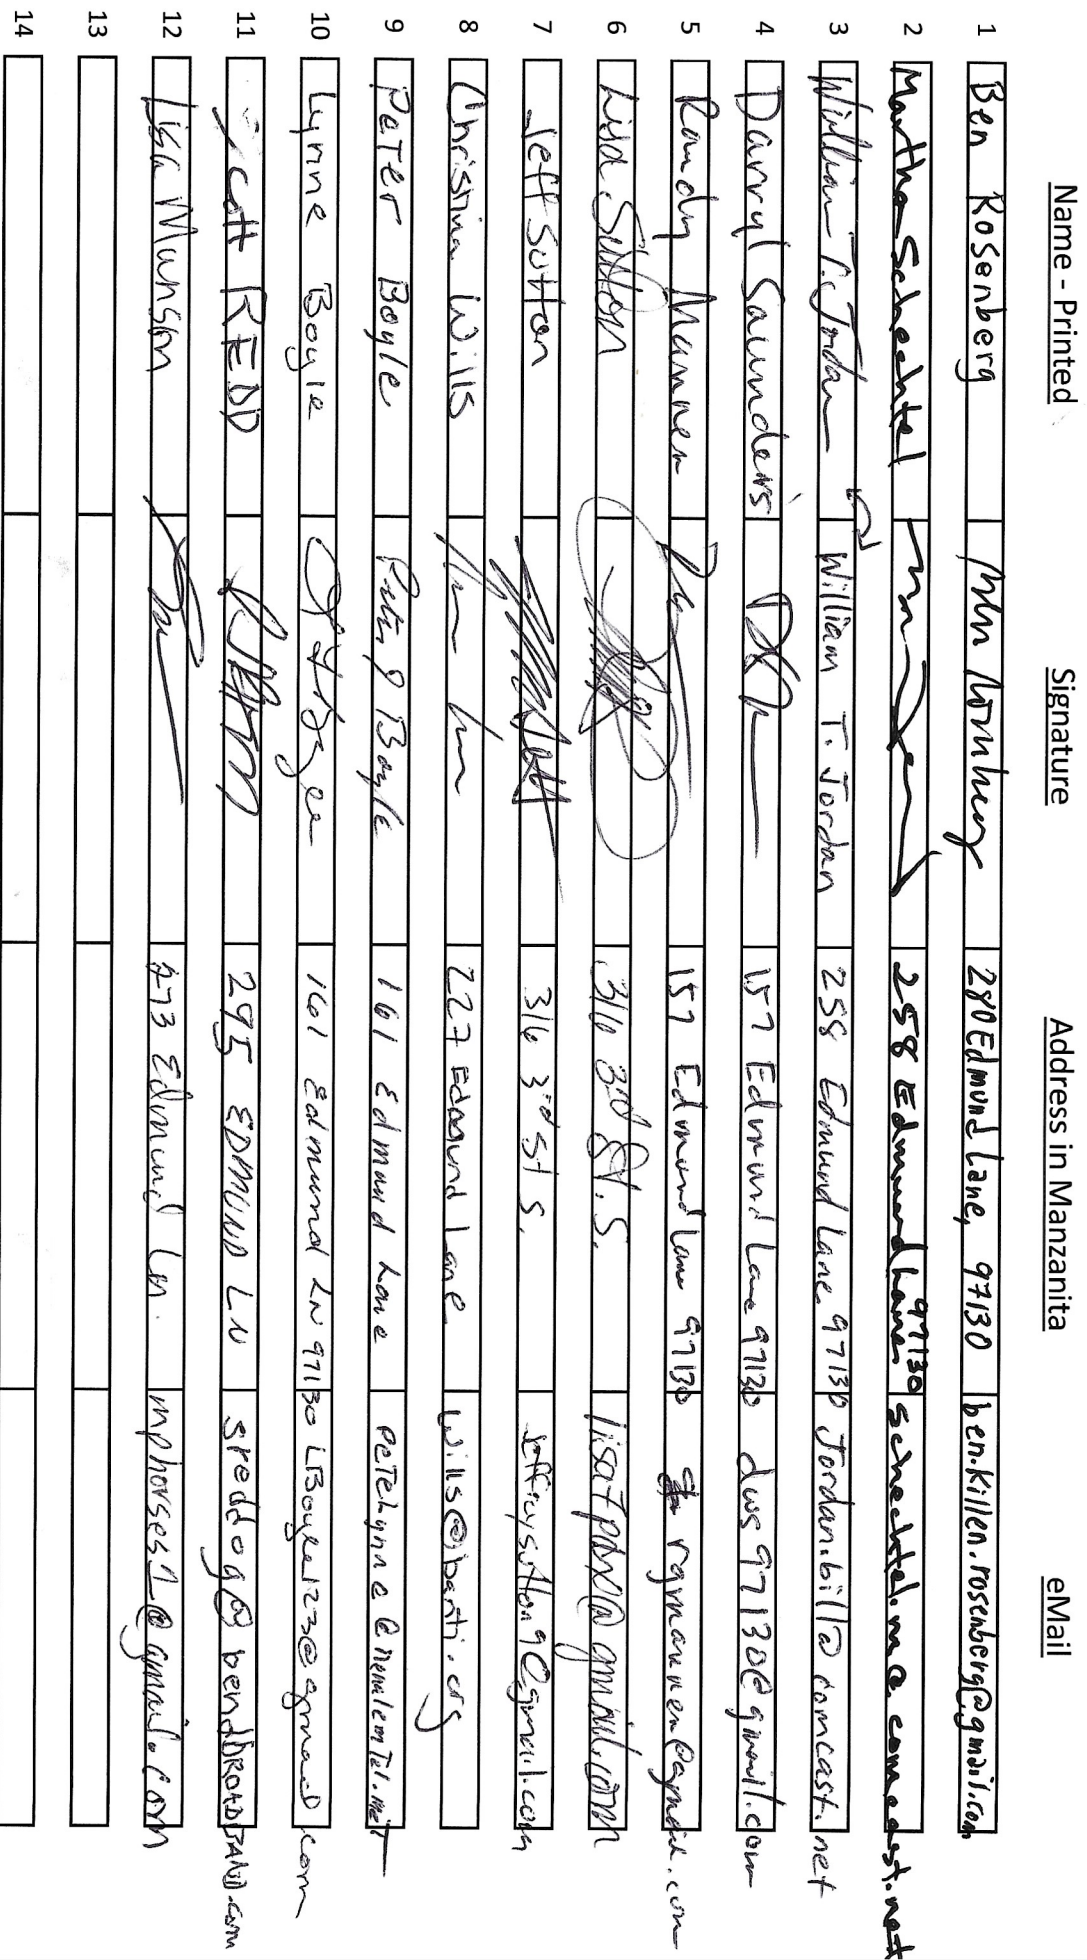 Name - Printed Signature Address in Manzanita eMail
1 Ben Rosenberg 280 Edmund Lane, 97130 ben.killen.rosenberg@gmail.com
2 Martha Schechtel 258 Edmund Lane 97130 schechtel.m@comcast.net
3 William T. Jordan William T. Jordan 258 Edmund Lane 97130 Jordan.bill@comcast.net
4 Darryl Saunders 157 Edmund Lane 97130 dws97130@gmail.com
5 Randy Mannen 157 Edmund Lane 97130 rgmannen@gmail.com
6 Lisa Sutton 316 3rd St. S. lisatpdx@gmail.com
7 Jeff Sutton 316 3rd St S.
8 Christina Wills 227 Edmund Lane
9 Peter Boyle Peter J Boyle 161 Edmund Lane
10 Lynne Boyle 161 Edmund LN 97130 LBoyle123@gmail.com
11 Scott REDD 295 EDMUND LN sreddog@bendBROADBAND.com
12 Lisa Munson 273 Edmund Ln. mphorses1@gmail.com
13
14